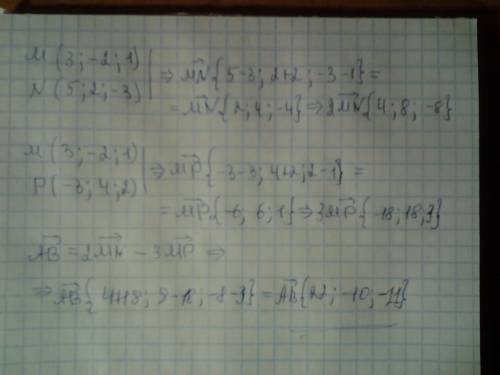 M (3; -2; 1)
N (5; 2; -3) | ⇒ MN{5-3; 2+2; -3-1} =
= MN{2; 4; -4} ⇒ 2MN{4; 8; -8}
M (3; -2; 1)
P(-3; 4; 2) | ⇒ MP{-3-3; 4+2; 2-1} =
= MP{-6; 6; 1} ⇒ 3MP{-18; 18; 3}
AB = 2MN - 3MP ⇒
⇒ AB{4+18; 8-18; -8-3} = AB{22; -10; -11}